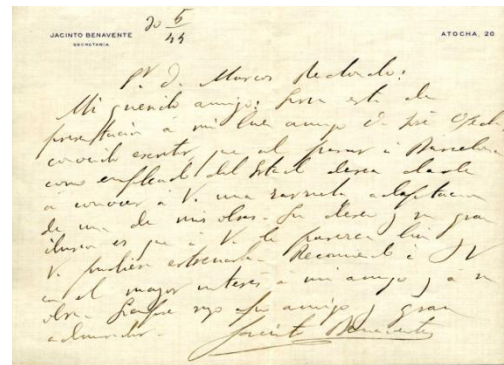 JACINTO BENAVENTE
SECRETARÍA
ATOCHA, 20
30 5/44
Sr. D. Marcos Redondo:
Mi querido amigo: Sirva esta de
presentación a mi buen amigo D. José
conocido escritor, que al pasar á Barcelona
como empleado del Estado desea darle
á conocer á V. una zarzuela adaptación
de una de mis obras. Su deseo y su gran
ilusión es que á V. le parezca bien y
V. pudiera estrenarla. Recomiendo á V
con el mayor interés á mi amigo y á su
obra. Siempre suyo afmo amigo y gran
admirador.
Jacinto Benavente